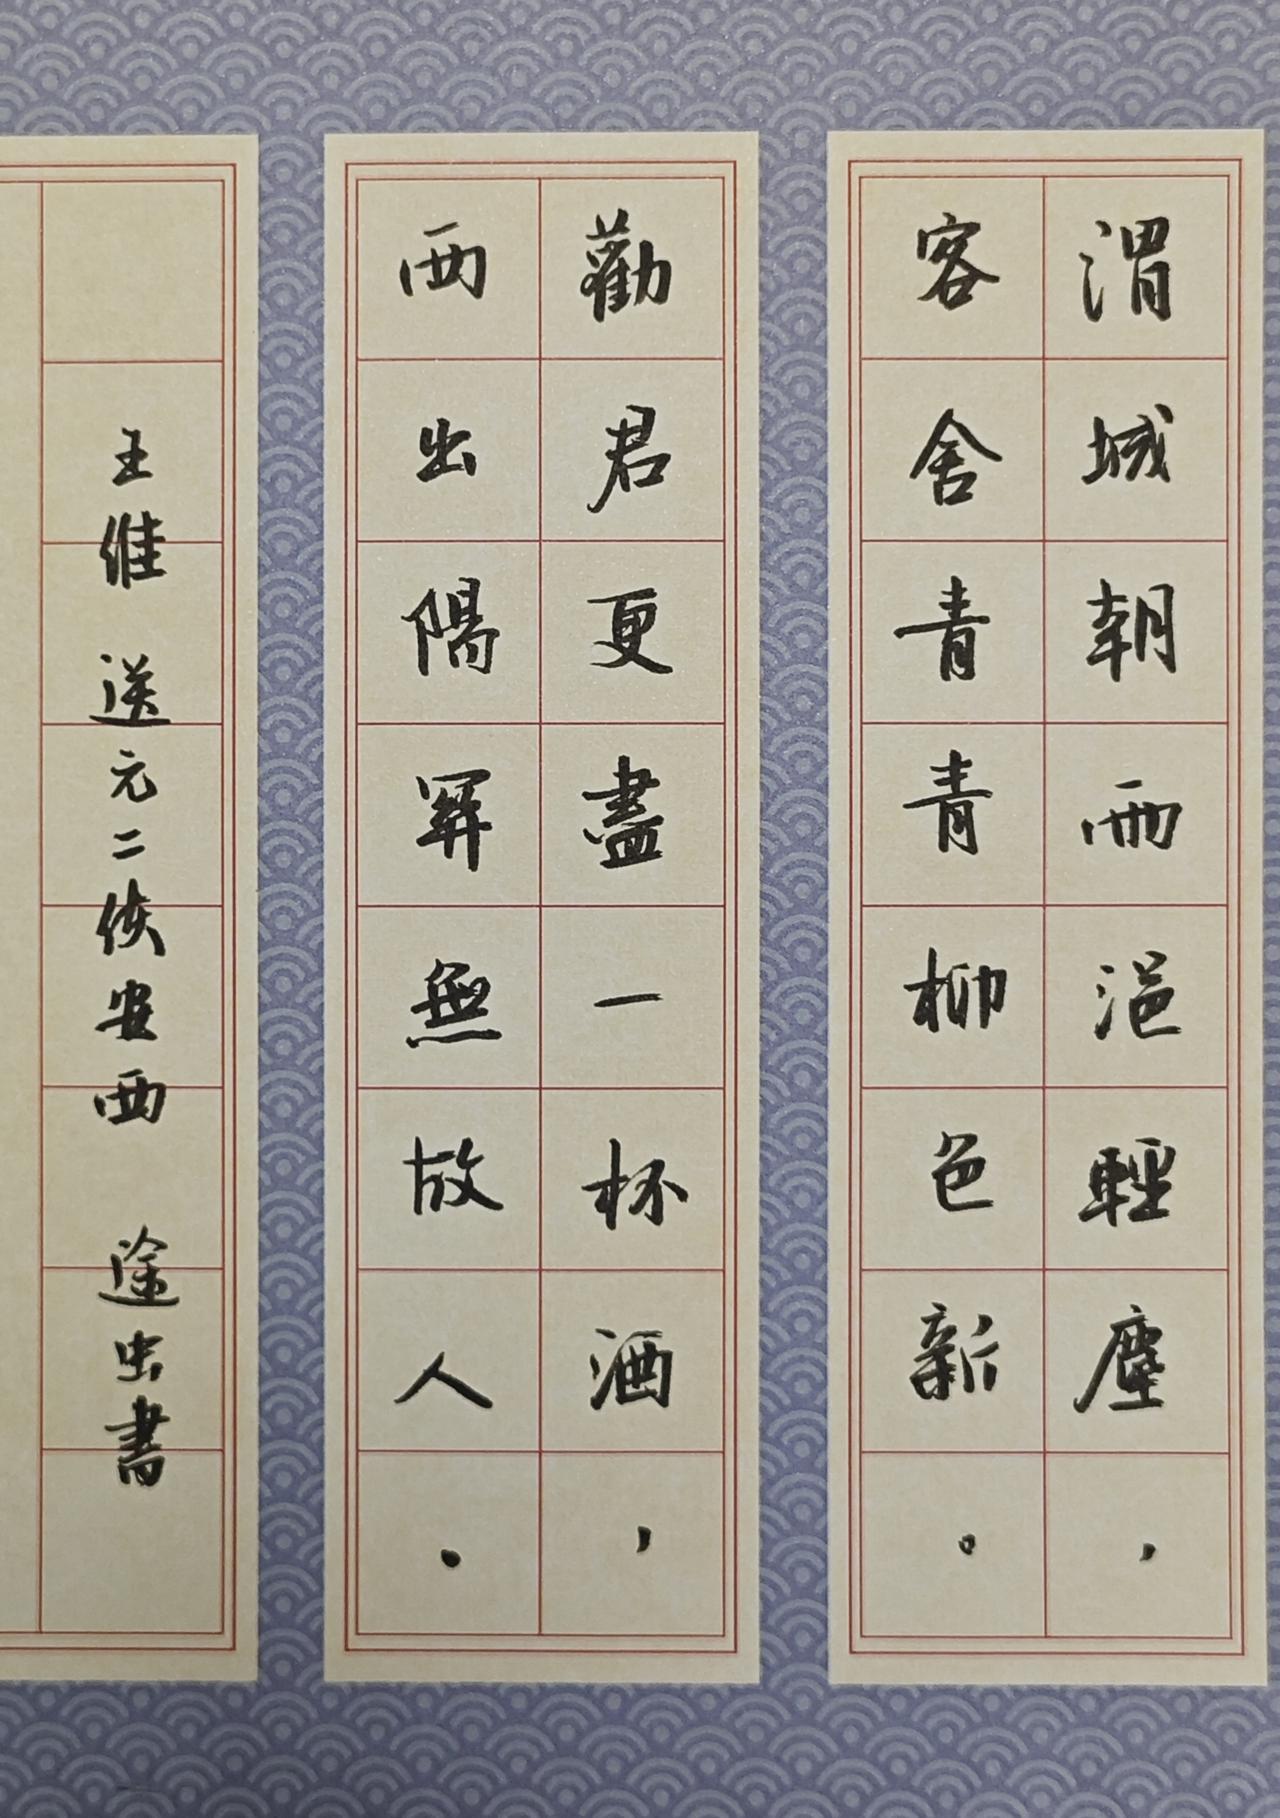 渭城朝雨浥輕塵，
客舍青青柳色新。
勸君更盡一杯酒，
西出陽關無故人。
王維 送元二使安西 途虫書